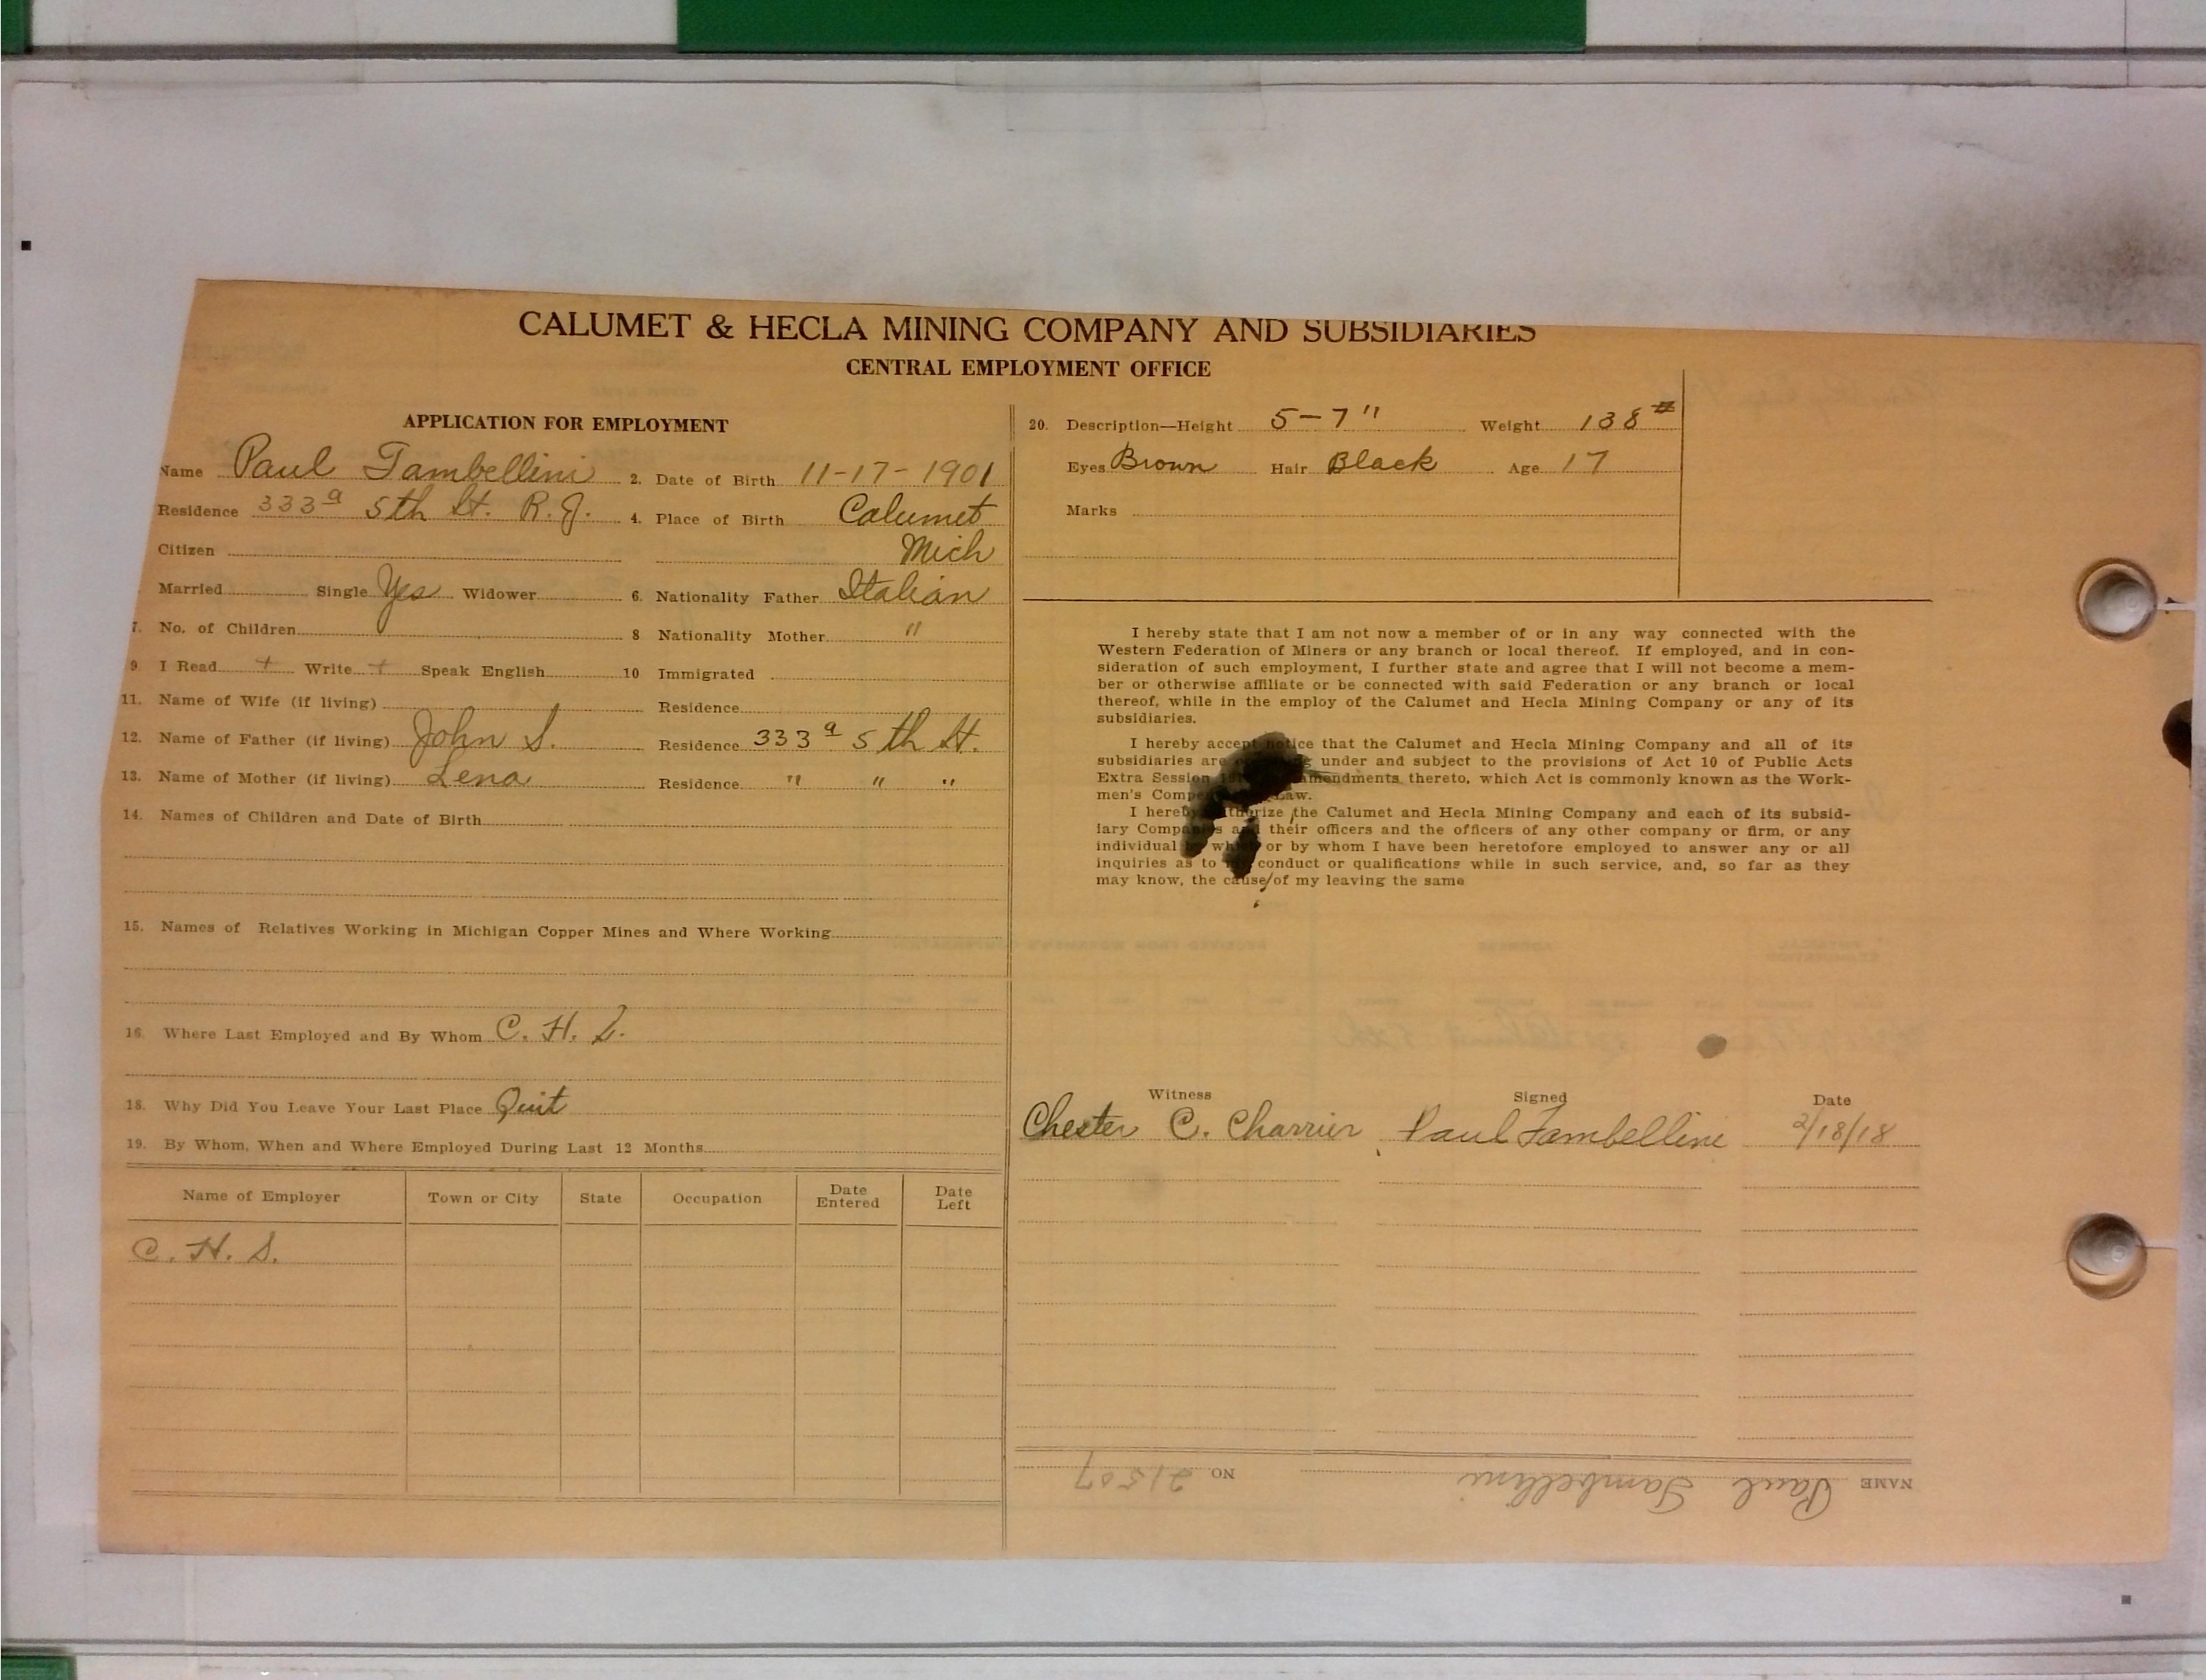 CALUMET & HECLA MINING COMPANY AND SUBSIDIARIES
CENTRAL EMPLOYMENT OFFICE
APPLICATION FOR EMPLOYMENT
Name Paul Tambellini 2. Date of Birth 11-17-1901
Residence 333a 5th St. R.J. 4. Place of Birth Calumet
Citizen Mich
Married Single Yes Widower 6. Nationality Father Italian
7. No. of Children 8 Nationality Mother "
9. I Read + Write + Speak English 10 Immigrated
11. Name of Wife (if living) Residence
12. Name of Father (if living) John S. Residence 333a 5th St.
13. Name of Mother (if living) Lena Residence " " "
14. Names of Children and Date of Birth
15. Names of Relatives Working in Michigan Copper Mines and Where Working
16. Where Last Employed and By Whom C. H. S.
18. Why Did You Leave Your Last Place Quit
19. By Whom, When and Where Employed During Last 12 Months
Name of Employer Town or City State Occupation Date Entered Date Left
C. H. S.
20. Description—Height 5-7" Weight 138#
Eyes Brown Hair Black Age 17
Marks
I hereby state that I am not now a member of or in any way connected with the
Western Federation of Miners or any branch or local thereof. If employed, and in con-
sideration of such employment, I further state and agree that I will not become a mem-
ber or otherwise affiliate or be connected with said Federation or any branch or local
thereof, while in the employ of the Calumet and Hecla Mining Company or any of its
subsidiaries.
I hereby accept notice that the Calumet and Hecla Mining Company and all of its
subsidiaries are under and subject to the provisions of Act 10 of Public Acts
Extra Session amendments thereto, which Act is commonly known as the Work-
men's Law.
I hereby authorize the Calumet and Hecla Mining Company and each of its subsid-
iary Companies and their officers and the officers of any other company or firm, or any
individual or by whom I have been heretofore employed to answer any or all
inquiries as to conduct or qualifications while in such service, and, so far as they
may know, the cause of my leaving the same
Witness Signed Date
Chester C. Charrier Paul Tambellini 2/18/18
NAME Paul Tambellini NO. 21507